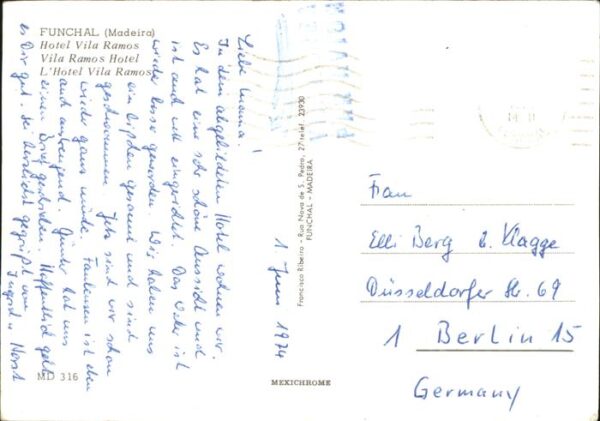 FUNCHAL (Madeira)
Hotel Vila Ramos
Vila Ramos Hotel
L'Hotel Vila Ramos
Liebe Mama!
In dem abgebildeten Hotel wohnen wir.
Es hat eine sehr schöne Aussicht und
ist auch nett eingerichtet. Das Wetter ist
wieder besser geworden. Wir haben uns
ein bißchen gesonnt und sind
geschwommen. Jetzt sind wir schon
wieder ganz müde. Faulenzen ist eben
auch anstrengend. Günter hat uns
einen Brief geschrieben. Hoffentlich geht
es Dir gut. Sei herzlichst gegrüßt von
Horst
1 Juni 1974
Francisco Ribeiro - Rua Nova de S. Pedro, 27-telef. 23930
FUNCHAL - MADEIRA
Frau
Elli Berg b. Klagge
Düsseldorfer Str. 69
1 Berlin 15
Germany
MD 316
MEXICHROME